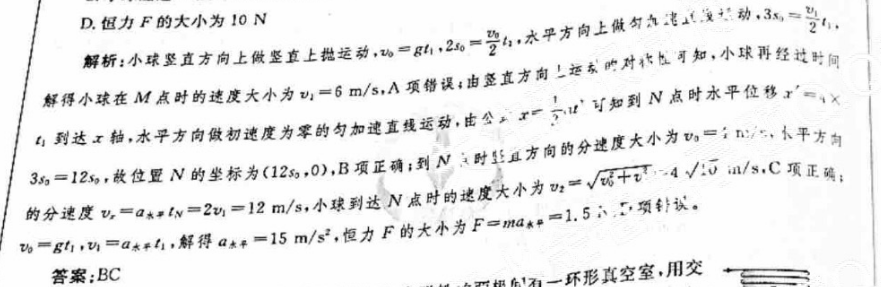 D. 恒力 F 的大小为 10 N
解析:小球竖直方向上做竖直上抛运动,v₀=gt₁,2s₀=v₀/2 t₁,水平方向上做匀加速直线运动,3s₀=v₁/2 t₁,
解得小球在 M 点时的速度大小为 v₁=6 m/s,A 项错误;由竖直方向上运动的对称性可知,小球再经过时间
t₁ 到达 x 轴,水平方向做初速度为零的匀加速直线运动,由公式 x=1/2at² 可知到 N 点时水平位移 x′=4×
3s₀=12s₀,故位置 N 的坐标为(12s₀,0),B 项正确;到 N 点时竖直方向的分速度大小为 v₀= m/s,水平方向
的分速度 vₓ=a水平tN=2v₁=12 m/s,小球到达 N 点时的速度大小为 v₂=√(v₀²+vₓ²)=4√10 m/s,C 项正确;
v₀=gt₁,v₁=a水平t₁,解得 a水平=15 m/s²,恒力 F 的大小为 F=ma水平=1.5 项错误。
答案:BC
有一环形真空室,用交